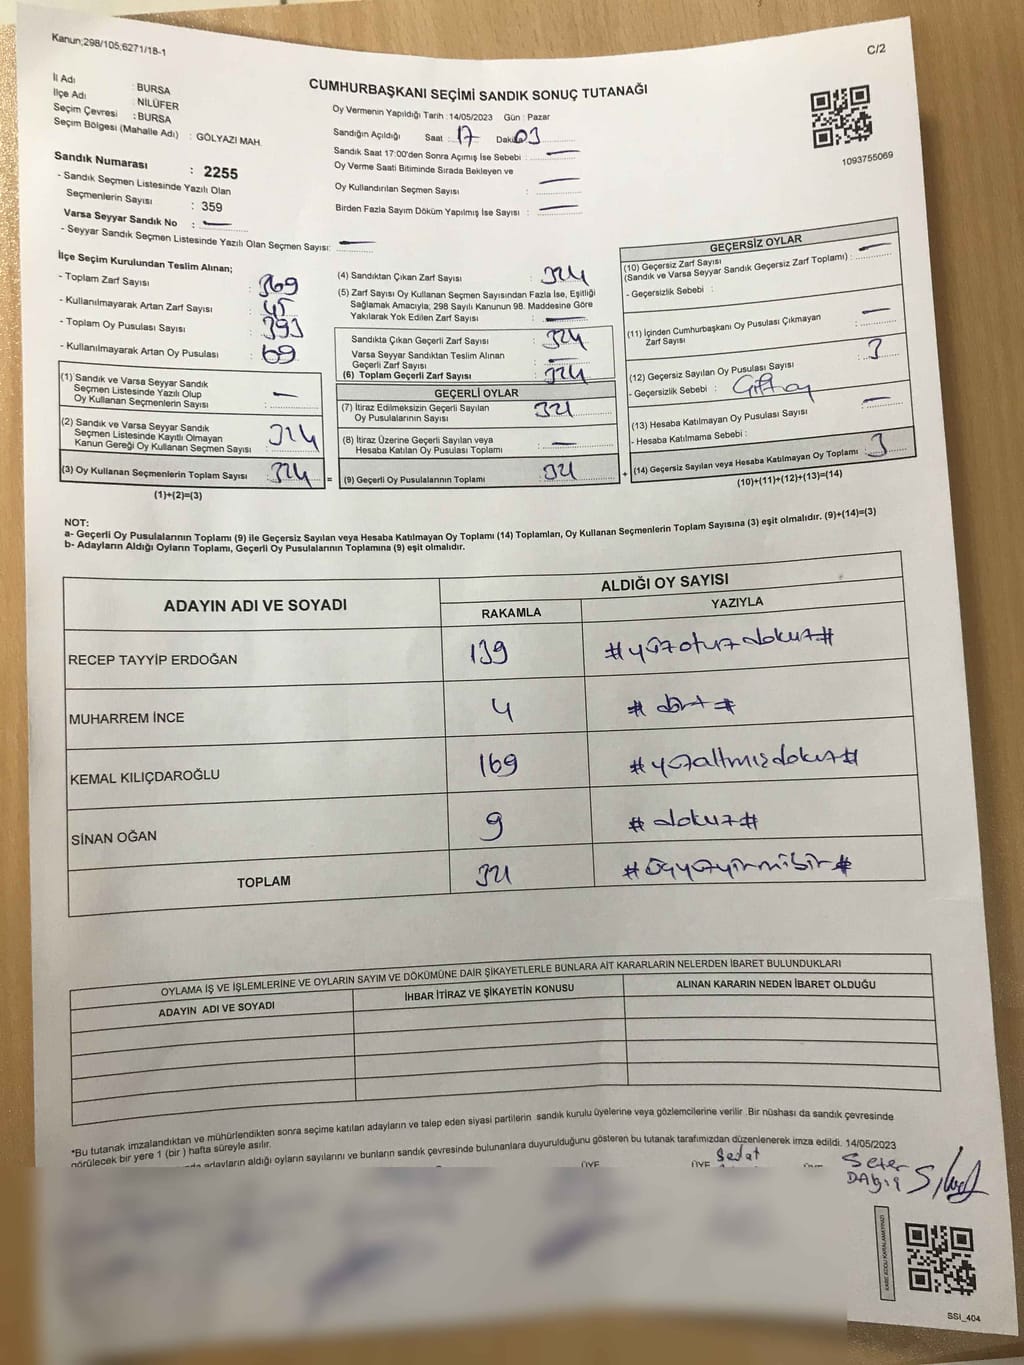 Kanun;298/105;6271/18-1
C/2
İl Adı : BURSA
İlçe Adı : NİLÜFER
Seçim Çevresi : BURSA
Seçim Bölgesi (Mahalle Adı) : GÖLYAZI MAH.
CUMHURBAŞKANI SEÇİMİ SANDIK SONUÇ TUTANAĞI
Oy Vermenin Yapıldığı Tarih :14/05/2023 Gün : Pazar
Sandığın Açıldığı Saat : 17 Dakika 03
Sandık Saat 17:00'den Sonra Açımış İse Sebebi : —
Oy Verme Saati Bitiminde Sırada Bekleyen ve
Oy Kullandırılan Seçmen Sayısı : —
Birden Fazla Sayım Döküm Yapılmış İse Sayısı : —
1093755069
Sandık Numarası : 2255
- Sandık Seçmen Listesinde Yazılı Olan
Seçmenlerin Sayısı : 359
Varsa Seyyar Sandık No : —
- Seyyar Sandık Seçmen Listesinde Yazılı Olan Seçmen Sayısı: —
İlçe Seçim Kurulundan Teslim Alınan;
- Toplam Zarf Sayısı : 369
- Kullanılmayarak Artan Zarf Sayısı : 45
- Toplam Oy Pusulası Sayısı : 393
- Kullanılmayarak Artan Oy Pusulası : 69
(1) Sandık ve Varsa Seyyar Sandık
Seçmen Listesinde Yazılı Olup
Oy Kullanan Seçmenlerin Sayısı : —
(2) Sandık ve Varsa Seyyar Sandık
Seçmen Listesinde Kayıtlı Olmayan
Kanun Gereği Oy Kullanan Seçmen Sayısı : 324
(3) Oy Kullanan Seçmenlerin Toplam Sayısı : 324
(1)+(2)=(3)
(4) Sandıktan Çıkan Zarf Sayısı : 324
(5) Zarf Sayısı Oy Kullanan Seçmen Sayısından Fazla İse, Eşitliği
Sağlamak Amacıyla; 298 Sayılı Kanunun 98. Maddesine Göre
Yakılarak Yok Edilen Zarf Sayısı : —
Sandıkta Çıkan Geçerli Zarf Sayısı : 324
Varsa Seyyar Sandıktan Teslim Alınan
Geçerli Zarf Sayısı : —
(6) Toplam Geçerli Zarf Sayısı : 324
GEÇERLİ OYLAR
(7) İtiraz Edilmeksizin Geçerli Sayılan
Oy Pusulalarının Sayısı : 321
(8) İtiraz Üzerine Geçerli Sayılan veya
Hesaba Katılan Oy Pusulası Toplamı : —
= (9) Geçerli Oy Pusulalarının Toplamı : 321
GEÇERSİZ OYLAR
(10) Geçersiz Zarf Sayısı
(Sandık ve Varsa Seyyar Sandık Geçersiz Zarf Toplamı) : —
- Geçersizlik Sebebi :
(11) İçinden Cumhurbaşkanı Oy Pusulası Çıkmayan
Zarf Sayısı : —
(12) Geçersiz Sayılan Oy Pusulası Sayısı : 3
- Geçersizlik Sebebi : Çift oy
(13) Hesaba Katılmayan Oy Pusulası Sayısı : —
- Hesaba Katılmama Sebebi :
+ (14) Geçersiz Sayılan veya Hesaba Katılmayan Oy Toplamı : 3
(10)+(11)+(12)+(13)=(14)
NOT:
a- Geçerli Oy Pusulalarının Toplamı (9) ile Geçersiz Sayılan veya Hesaba Katılmayan Oy Toplamı (14) Toplamları, Oy Kullanan Seçmenlerin Toplam Sayısına (3) eşit olmalıdır. (9)+(14)=(3)
b- Adayların Aldığı Oyların Toplamı, Geçerli Oy Pusulalarının Toplamına (9) eşit olmalıdır.
ADAYIN ADI VE SOYADI
ALDIĞI OY SAYISI
RAKAMLA YAZIYLA
RECEP TAYYİP ERDOĞAN 139 #yüzotuzdokuz#
MUHARREM İNCE 4 #dört#
KEMAL KILIÇDAROĞLU 169 #yüzaltmışdokuz#
SİNAN OĞAN 9 #dokuz#
TOPLAM 321 #üçyüzyirmibir#
OYLAMA İŞ VE İŞLEMLERİNE VE OYLARIN SAYIM VE DÖKÜMÜNE DAİR ŞİKAYETLERLE BUNLARA AİT KARARLARIN NELERDEN İBARET BULUNDUKLARI
ADAYIN ADI VE SOYADI
İHBAR İTİRAZ VE ŞİKAYETİN KONUSU
ALINAN KARARIN NEDEN İBARET OLDUĞU
*Bu tutanak imzalandıktan ve mühürlendikten sonra seçime katılan adayların ve talep eden siyasi partilerin sandık kurulu üyelerine veya gözlemcilerine verilir. Bir nüshası da sandık çevresinde
görülecek bir yere 1 (bir) hafta süreyle asılır.
adayların aldığı oyların sayılarını ve bunların sandık çevresinde bulunanlara duyurulduğunu gösteren bu tutanak tarafımızdan düzenlenerek imza edildi. 14/05/2023
ÜYE ÜYE Sedat
SSI_404